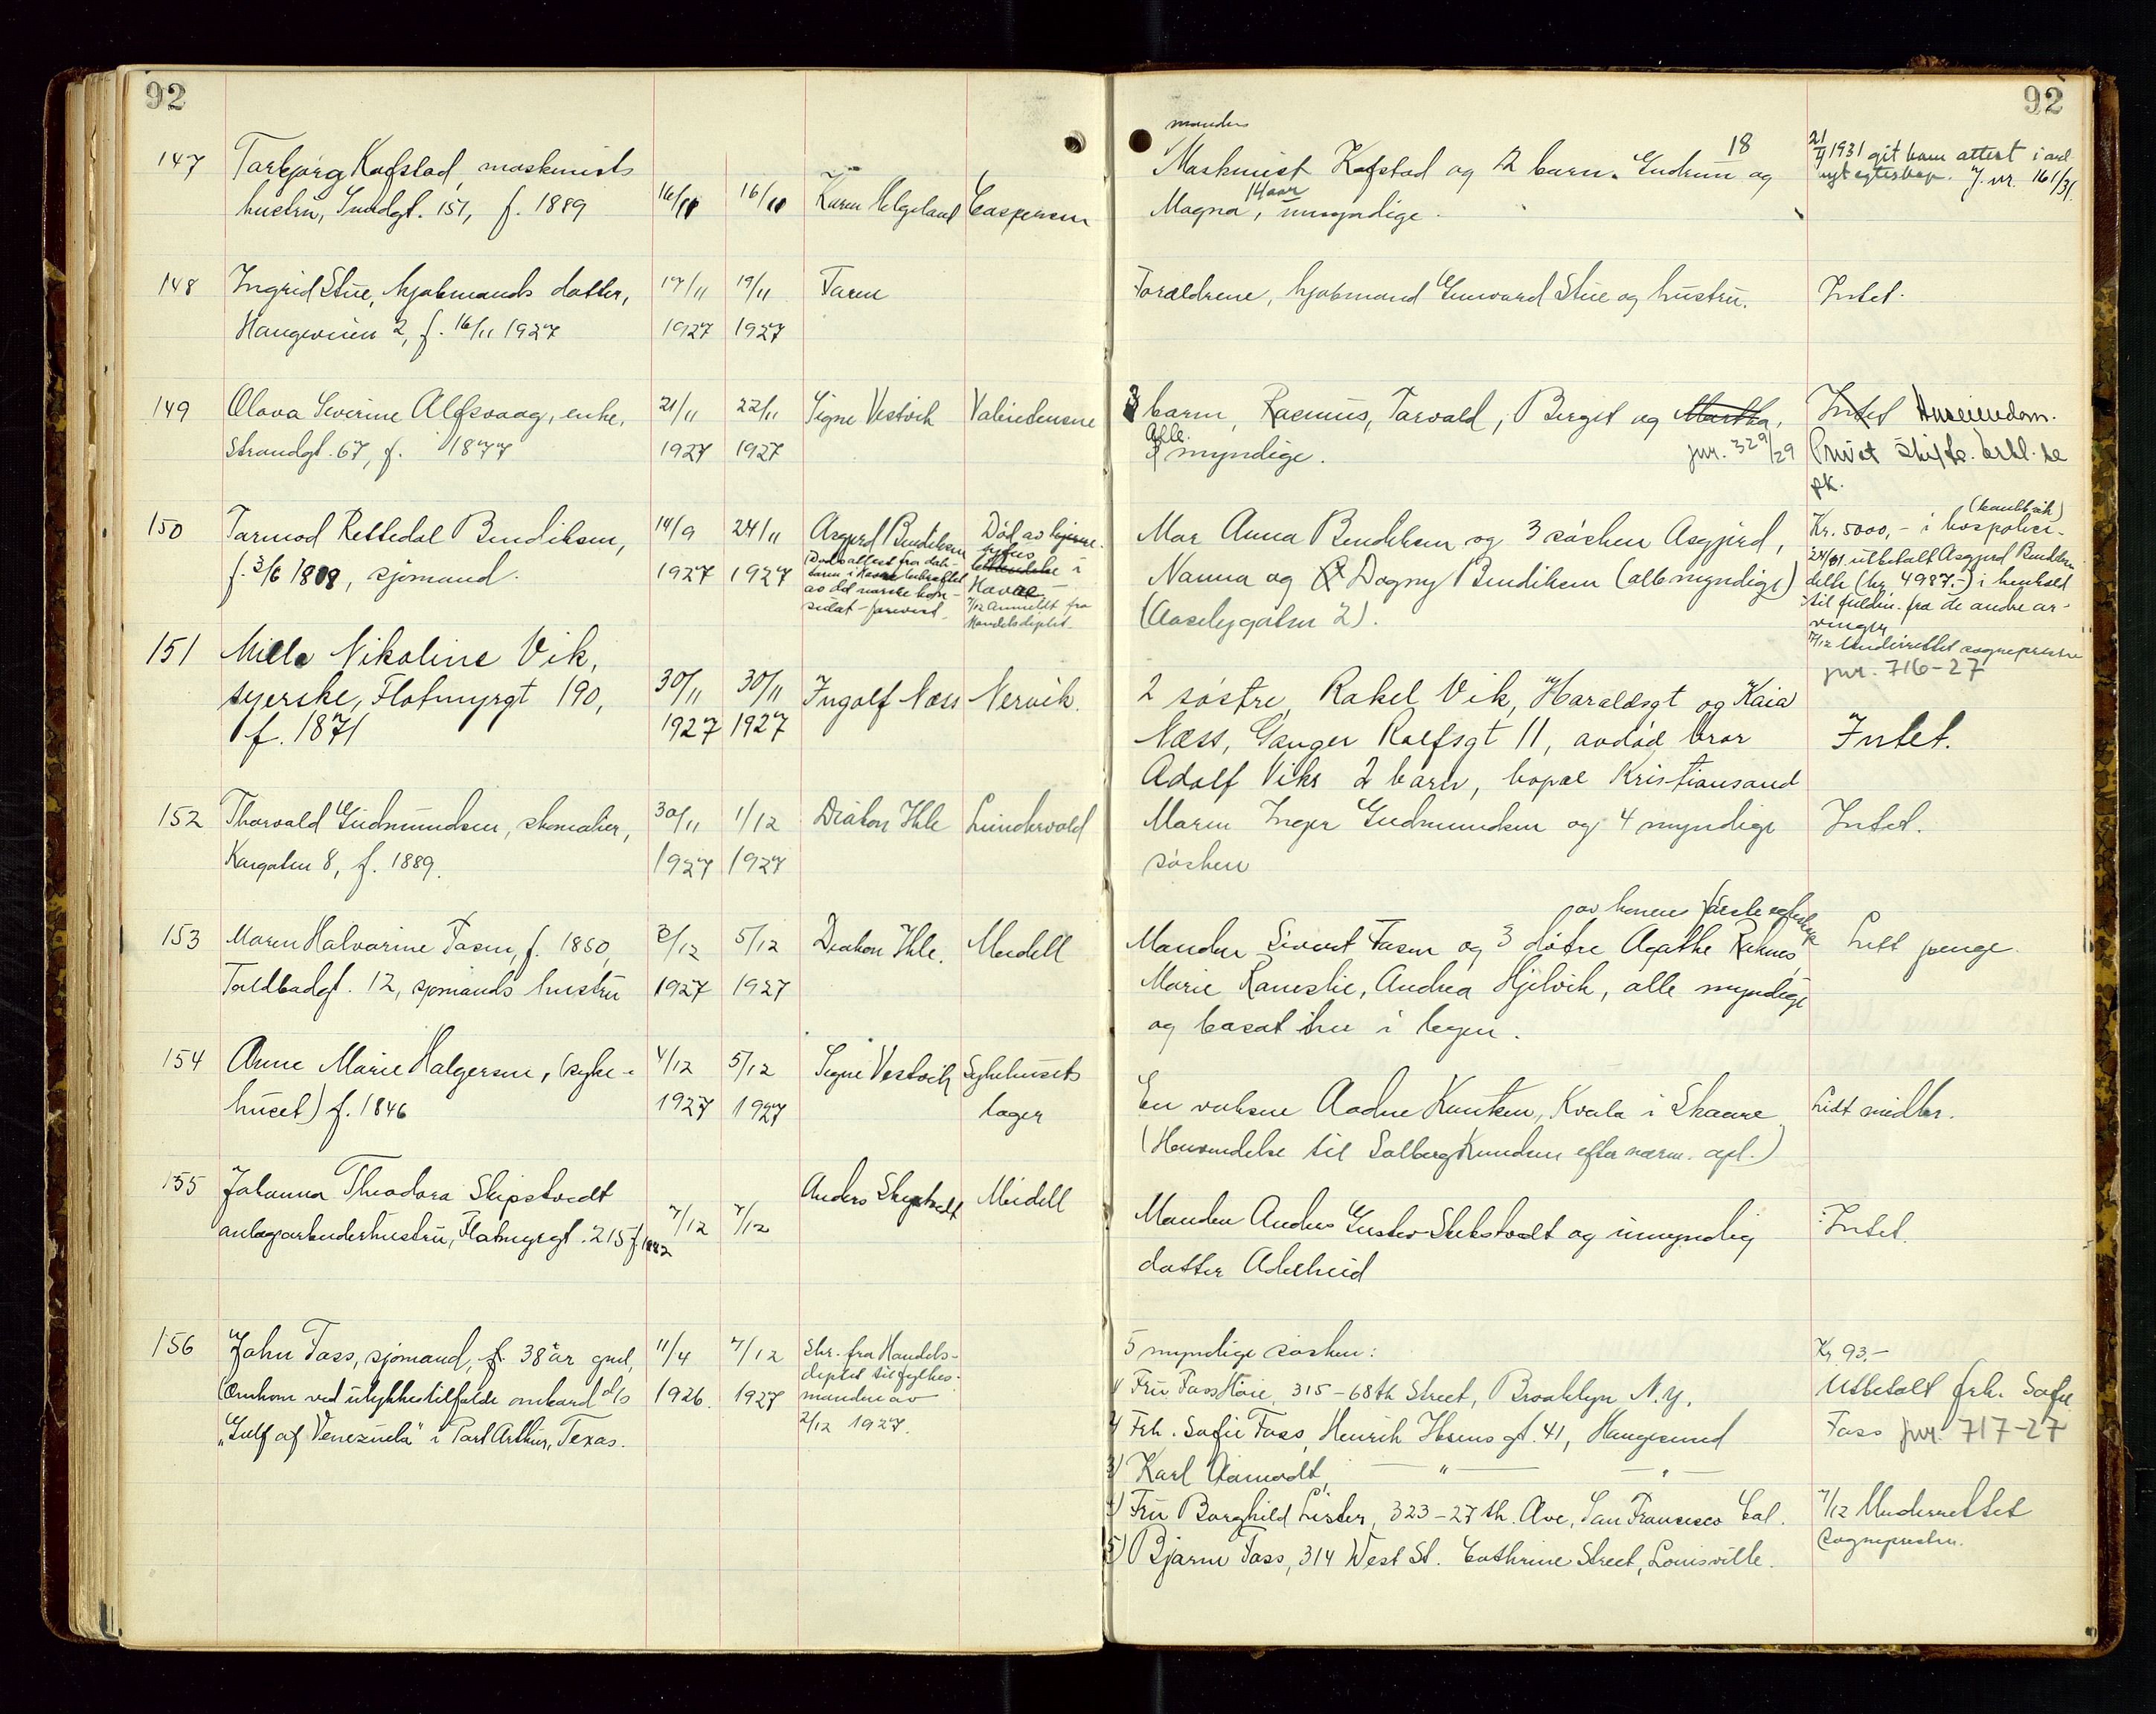 92
147 Torbjørg Kofstad, maskinists
hustru, Sundgt. 151, f. 1889
16/11 16/11 Karen Helgeland Caspersen
148 Ingrid Stue, kjøbmands datter,
Haugeveien 2, f. 16/11 1927
17/11 19/11 Faren
1927 1927
149 Olava Severine Alfsvaag, enke,
Strandgt. 67, f. 1877
21/11 22/11 Signe Vestvik
1927 1927
150 Tormod Rettedal Bendiksen,
f. 3/6 1908, sjømand.
14/9 24/11 Asgjerd Bendiksen
1927 1927
Død av
tyfus
i
Havre
7/12 Anmeldt fra
Handelsdeptet.
151 Milla Nikoline Vik,
syerske, Flotmyrgt 190,
f. 1871
30/11 30/11 Ingolf Næss Nervik.
1927 1927
152 Thorvald Gudmundsen, skomaker,
Kaigaten 8, f. 1889.
30/11 1/12 Diakon Ihle Lundervold
1927 1927
153 Maren Halvorine Fosen, f. 1850,
Toldbodgt. 12, sjømands hustru
3/12 5/12 Diakon Ihle. Meidell
1927 1927
154 Anne Marie Halgersen, (syke-
huset) f. 1846
4/12 5/12 Signe Vestvik Sykehusets
1927 1927 læger
155 Johanna Theodora Skipstvedt
anlægsarbeiderhustru, Flotmyrgt. 215 f. 1882
7/12 7/12 Anders Skipstvedt Meidell
156 John Foss, sjømand, f. 38 år gml,
(Omkom ved ulykkestilfælde ombord d/s
"Gulf of Venezuela" i Port Arthur, Texas.
11/4 7/12 Skr. fra Handels-
deptet til fylkes-
1926. 1927 manden av
2/12 1927.
92
manden
Maskinist Kofstad og 2 barn. Gudrun 18 og
Magna, 14 aar umyndige.
2/7 1931 git ham attest i anl.
nyt egteskap. J. nr. 161/31.
Forældrene, kjøbmand Gunvard Stue og hustru.
Intet.
3 barn, Rasmus, Torvald, Berget og Martha,
Alle
myndige.
jnr. 329/29
Intet Huseiendom.
Privat skifte.
Mor Anna Bendiksen og 3 søsken Asgjerd,
Nanna og Dagny Bendiksen (alle myndige)
(Aasebygaten 2).
Kr. 5000,- i
utbetalt Asgjerd Bendiksen
(kr. 4987.-) i henhold
til fuldm. fra de andre ar-
vinger
7/12 Underrettet sogneprest
jnr. 716-27
2 søstre, Rakel Vik, Haraldsgt og Kaia
Næss, Ganger Rolfsgt 11, avdød bror
Adolf Viks 2 barn, bopæl Kristiansand
Intet.
Moren Inger Gudmundsen og 4 myndige
søsken
Intet.
av konens første egteskap
Manden Sivert Fosen og 3 døtre Agathe Røknes,
Marie Ramslie, Andrea Hjelvik, alle myndige
og bosat her i byen.
Litt penge.
En voksen Aadne Knutsen, Kvala i Skaare
(Henvendelse til Solberg Knudsen efter nærm. opl.)
Lidt midler.
Manden Anders Gustav Skibstvedt og umyndig
datter Adelheid
Intet.
5 myndige søsken:
1) Fru Foss Høie, 315-68th Street, Brooklyn N.Y.
2) Frk. Sofie Foss, Henrik Ibsens gt. 41, Haugesund
3) Karl Aamodt, — " — — " —
4) Fru Borghild Lister, 323-27th. Ave, San Francisco Cal.
5) Bjarne Foss, 314 West St. Cathrine Street, Louisville.
Kr. 93.-
Utbetalt frk. Sofie
Foss jnr. 717-27
7/12 Underrettet
Sognepresten.